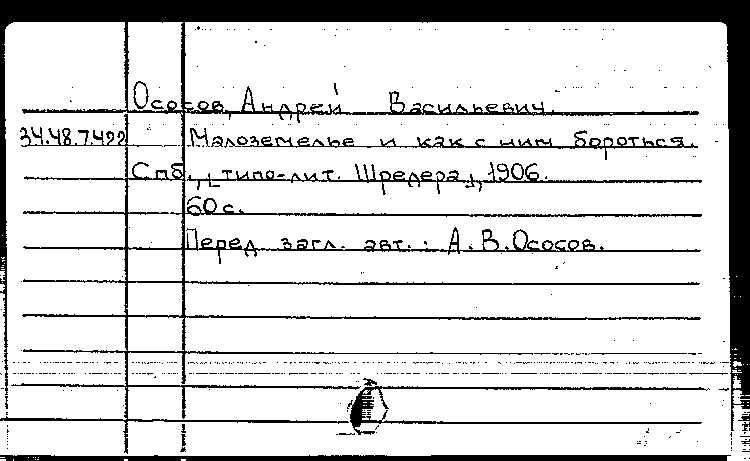 Ососов, Андрей Васильевич.
34.48.7.422 Малоземелье и как с ним бороться.
Спб., [типо-лит. Шредера], 1906.
60 с.
Перед загл. авт.: А.В.Ососов.